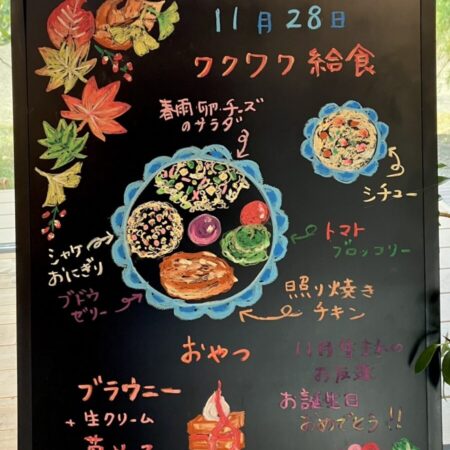 11月28日
ワクワク給食
春雨・卵・チーズ
のサラダ
シチュー
シャケ
おにぎり
トマト
ブロッコリー
ブドウ
ゼリー
照り焼き
チキン
おやつ
11月生まれの
お友達
お誕生日
おめでとう!!
ブラウニー
+生クリーム